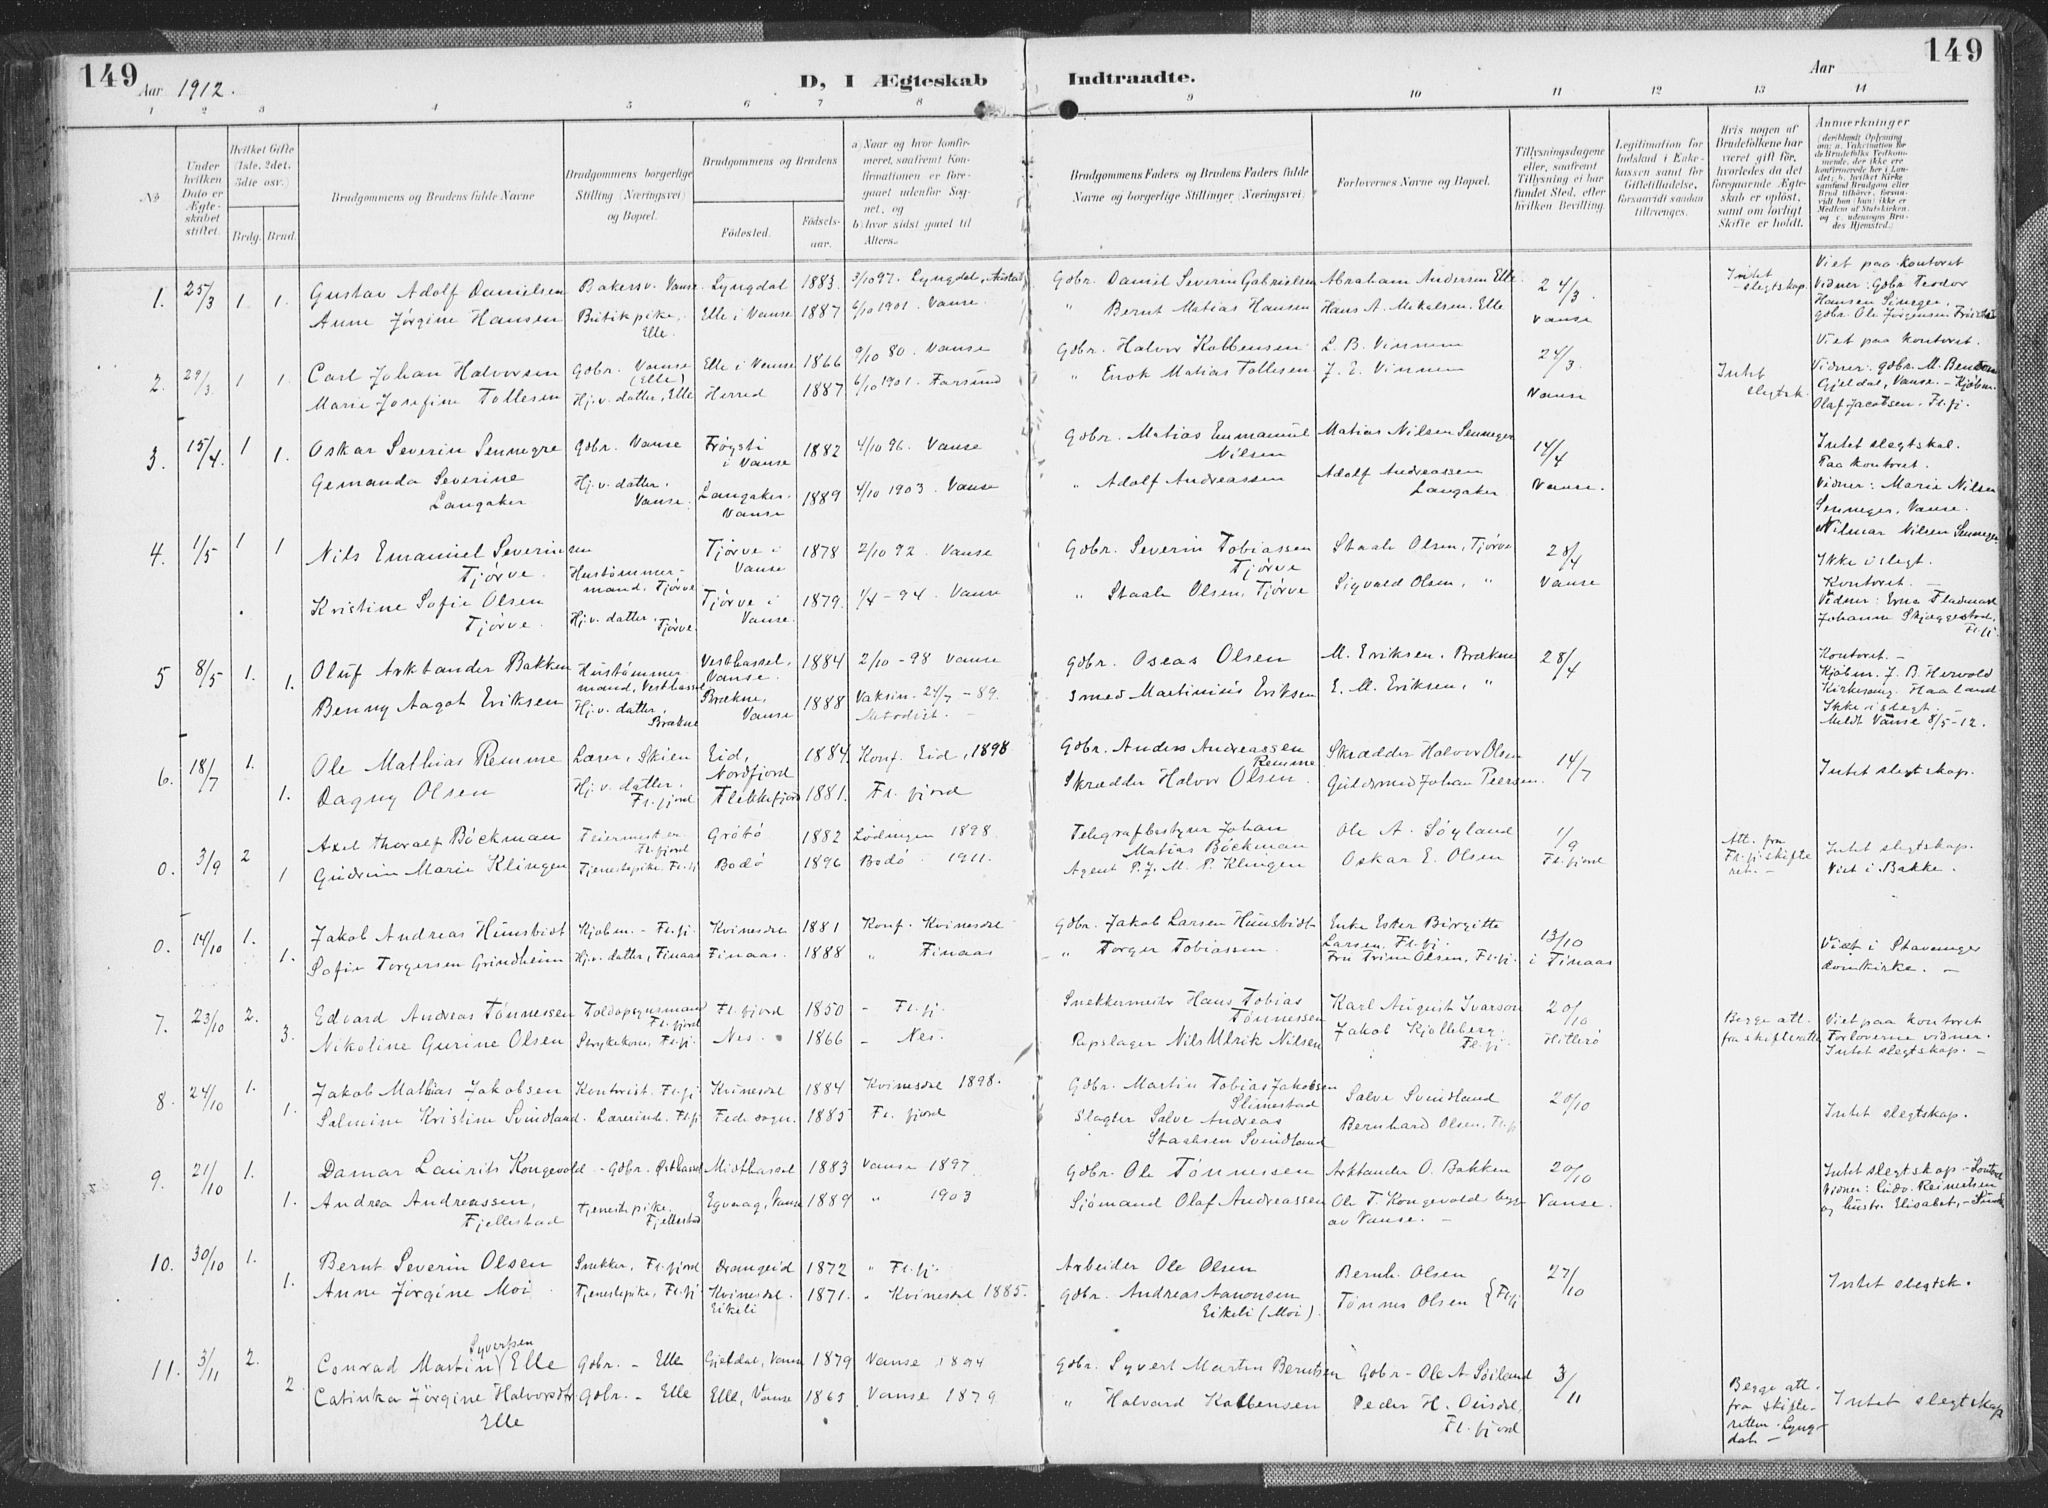 149
Aar 1912.
D, I Ægteskab Indtraadte.
Aar
149
1 2 3 4 5 6 7 8 9 10 11 12 13 14
No
Under hvilken Dato er Ægteskabet stiftet.
Hvilket Gifte (1ste, 2det, 3die osv.)
Brdg. Brud.
Brudgommens og Brudens fulde Navne
Brudgommens borgerlige Stilling (Næringsvei) og Bopæl.
Brudgommens og Brudens
Fødested.
Fødselsaar.
a) Naar og hvor konfirmeret, saafremt Konfirmationen er foregaaet udenfor Sognet, og
b) hvor sidst gaaet til Alters.
Brudgommens Faders og Brudens Faders fulde Navne og borgerlige Stillinger (Næringsvei)
Forlovernes Navne og Bopæl.
Tillysningsdagene eller, saafremt Tillysning ei har fundet Sted, efter hvilken Bevilling.
Legitimation for Indskud i Enkekassen samt for Giftetilladelse, forsaavidt saadan tiltrænges.
Hvis nogen af Brudefolkene har været gift før, hvorledes da det foregaaende Ægteskab er opløst, samt om lovligt Skifte er holdt.
Anmerkninger
(deriblandt Oplysning om: a. Vaksination for de Brudefolks Vedkommende, der ikke ere konfirmerede her i Landet; b. hvilket Kirkesamfund Brudgom eller Brud tilhører, forsaavidt han (hun) ikke er Medlem af Statskirken, og c. udensogns Brudes Hjemsted.)
1. 25/3 1 1. Gustav Adolf Danielsen Bakersv. Vanse Lyngdal 1883. 3/10 97. Lyngdal, Gdbr. Daniel Severin Gabrielsen Abraham Andersen Elle 24/3. Intet slegtskap. Viet paa kontoret
Anne Jørgine Hansen Butikpike, Elle. Elle i Vanse 1887 6/10 1901. Vanse. " Bernt Matias Hansen Hans A. Mikalsen, Elle Vanse Vidner: Gdbr. Teodor Hansen Sineger, gdbr. Ole Jørgensen
2. 29/3 1 1. Carl Johan Halvorsen Gdbr. Vanse (Elle) Elle i Vanse 1866 9/10 80. Vanse Gdbr. Halvor Kolbensen L. B. Vinnem 24/3 Intet slegtsk. Viet paa kontoret.
Marie Josefine Tollesen Hj.v. datter, Elle Herred 1887. 6/10 1901. Farsund " Enok Matias Tollesen J. E. Vinnem Vanse Vidner: gdbr. M. Bentsen Gjeldal, Vanse. - Kjøbm. Olaf Jacobsen. Fl.fj.
3. 15/4. 1 1. Oskar Severin Sennegre Gdbr. Vanse Frøgsti i Vanse 1882 4/10 96. Vanse Gdbr. Matias Emmanuel Nilsen Matias Nilsen Senneger 14/4 Intet slegtskap.
Gemanda Severine Langaker Hj.v. datter. Vanse. Langaker. Vanse 1889 4/10 1903. Vanse " Adolf Andreassen Adolf Andreassen Langaker Vanse. Paa kontoret. Vidner: Marie Nilsen Senneger, Vanse. Nilmar Nilsen Senneger
4. 1/5 1 1 Nils Emanuel Severinsen Tjørve. Hustømmermand, Tjørve Tjørve i Vanse 1878 2/10 92. Vanse Gdbr. Severin Tobiassen Tjørve Staale Olsen, Tjørve 28/4 Ikke i slegt.
Kristine Sofie Olsen Tjørve. Hj.v. datter, Tjørve. Tjørve i Vanse. 1879. 1/4 - 94. Vanse " Staale Olsen, Tjørve Sigvald Olsen, " Vanse Kontoret. - Vidner: Erna Fladmark Johanne Skjæggestad, Fl.fj.
5 8/5 1. 1. Oluf Arktander Bakken Hustømmermand, Vesthassel Vesthassel, Vanse. 1884 2/10 - 98 Vanse Gdbr. Oseas Olsen M. Eriksen. Brækne 28/4 Kontoret. -
Benny Aagot Eriksen Hj.v. datter, Brækne Brækne, Vanse 1888 Vaksin. 24/7 - 89. Metodist. - Smed Martinius Eriksen E. M. Eriksen, " Kjøbm. J. B. Hervold Kirkesang. Haaland Ikke i slegt. - Meldt Vanse 8/5-12.
6. 18/7 1. 1. Ole Mathias Remme Lærer, Skien Eid, Nordfjord 1884. Konf. Eid, 1898 Gdbr. Anders Andreassen Remme Skrædder Halvor Olsen 14/7 Intet slegtskap.
Dagny Olsen Hj.v. datter. Fl.fjord Flekkefjord 1881. Fl.fjord Skrædder Halvor Olsen Guldsmed Johan Peersen
0. 3/9 2 1 Axel Thoralf Böckman Feiermester. Fl.fjord Grøtø 1882 Lødingen 1898. Telegrafbestyrer Johan Matias Böckman Ole A. Søyland 1/9 Att. fra Fl.fj. skifteret. - Intet slegtskap.
Gudrun Marie Klingen Tjenestepike, Fl.fj. Bodø 1896 Bodø 1911. Agent P. J. M. P. Klingen Oskar E. Olsen Fl.fjord Viet i Bakke.
0. 14/10 1. 1. Jakob Andreas Hunsbidt Kjøbm. - Fl.fj. Kvinesdal 1881 Konf. Kvinesdal Gdbr. Jakob Larsen Hunsbidt Enke Ester Birgitte Larsen, Fl.fj. 13/10 Viet i Stavanger
Sofie Torgersen Grindheim Hj.v. datter, Finaas Finaas. 1888 " Finaas " Torger Tobiassen. Fru Trine Olsen, Fl.fj. i Finaas domkirke. -
7. 23/10 2. 3. Edvard Andreas Tønnessen Toldopsynsmand Fl.fjord Fl.fjord 1850 - Fl.fj. Snekkermester Hans Tobias Tønnessen Karl August Ivarson 20/10 Begge att. fra skifteretten Viet paa kontoret
Nikoline Gurine Olsen Strykekone, Fl.fj. Nes. 1866 - Nes. Repslager Nils Ulrik Nilsen Jakob Kjølleberg. Fl.fj. Hitterø Forloverne vidner. Intet slegtskap. -
8. 24/10 1. 1. Jakob Mathias Jakobsen Kontorist. Fl.fj. Kvinesdal 1884 Kvinesdal 1898. Gdbr. Martin Tobias Jakobsen Slimestad Salve Svindland 20/10 Intet slegtskap.
Salmine Kristine Svindland. Lærerinde. Fl.fj Fede sogn. 1885 Fl.fjord Slagter Salve Andreas Staalsen Svindland Bernhard Olsen, Fl.fj
9. 21/10 1. 1. Damar Laurits Kongevold - Gdbr. Østhassel Midthassel 1883 Vanse 1897. Gdbr. Ole Tønnessen Arktander O. Bakken 20/10 Intet slegtskap. - Kontoret
Andrea Andreassen, Fjellestad Tjenestepike. Fjellestad Egvaag, Vanse 1889 " 1903 Sjømand Olaf Andreassen Ole T. Kongevold begge av Vanse. - Vanse. Vidner: Ludv. Reinertsen og hustr. Elisabet, -
10. 30/10 1. 1. Bernt Severin Olsen Snekker, Fl.fjord Drangeid 1872 " Fl.fj. Arbeider Ole Olsen Bernh. Olsen 27/10 Intet slegtsk.
Anne Jørgine Moi Tjenestepike, Fl.fj Kvinesdal. Eikeli 1871. " Kvinesdal 1885. Gdbr. Andreas Aanonsen Eikeli (Moi). Tønnes Olsen } Fl.fj
11. 3/11 2. 2. Conrad Martin Syvertsen Elle Gdbr. - Elle Gjeldal, Vanse 1879 Vanse 1894 Gdbr. Syvert Martin Berntsen Gdbr - Ole A Søiland 3/11 Begge att. fra skifteretten - Lyngdal - Intet slegtskap
Catinka Jørgine Halvorsdtr Elle Gdbr. - Elle Elle, Vanse 1865 Vanse 1879 " Halvard Kolbensen Peder H. Fl.fjord